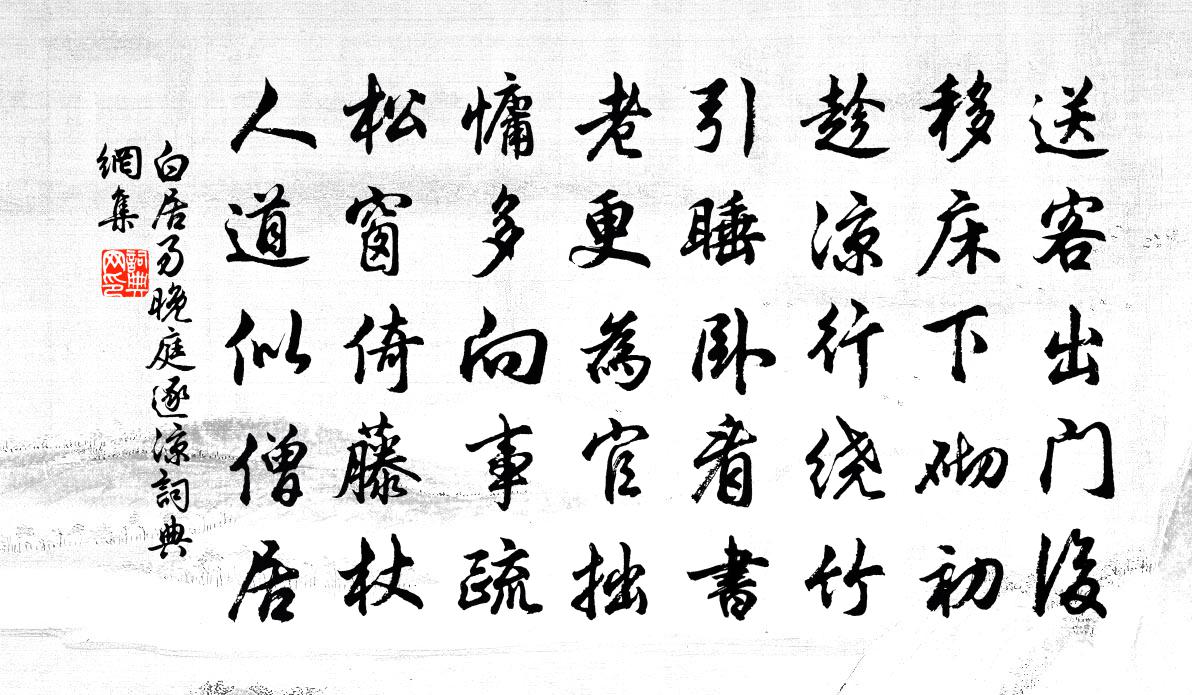 送客出门後
移床下砌初
趁涼行绕竹
引睡卧看書
老更為官拙
慵多向事疏
松窗倚藤杖
人道似僧居
白居易晚庭逐涼詞典
網集
詞典网印